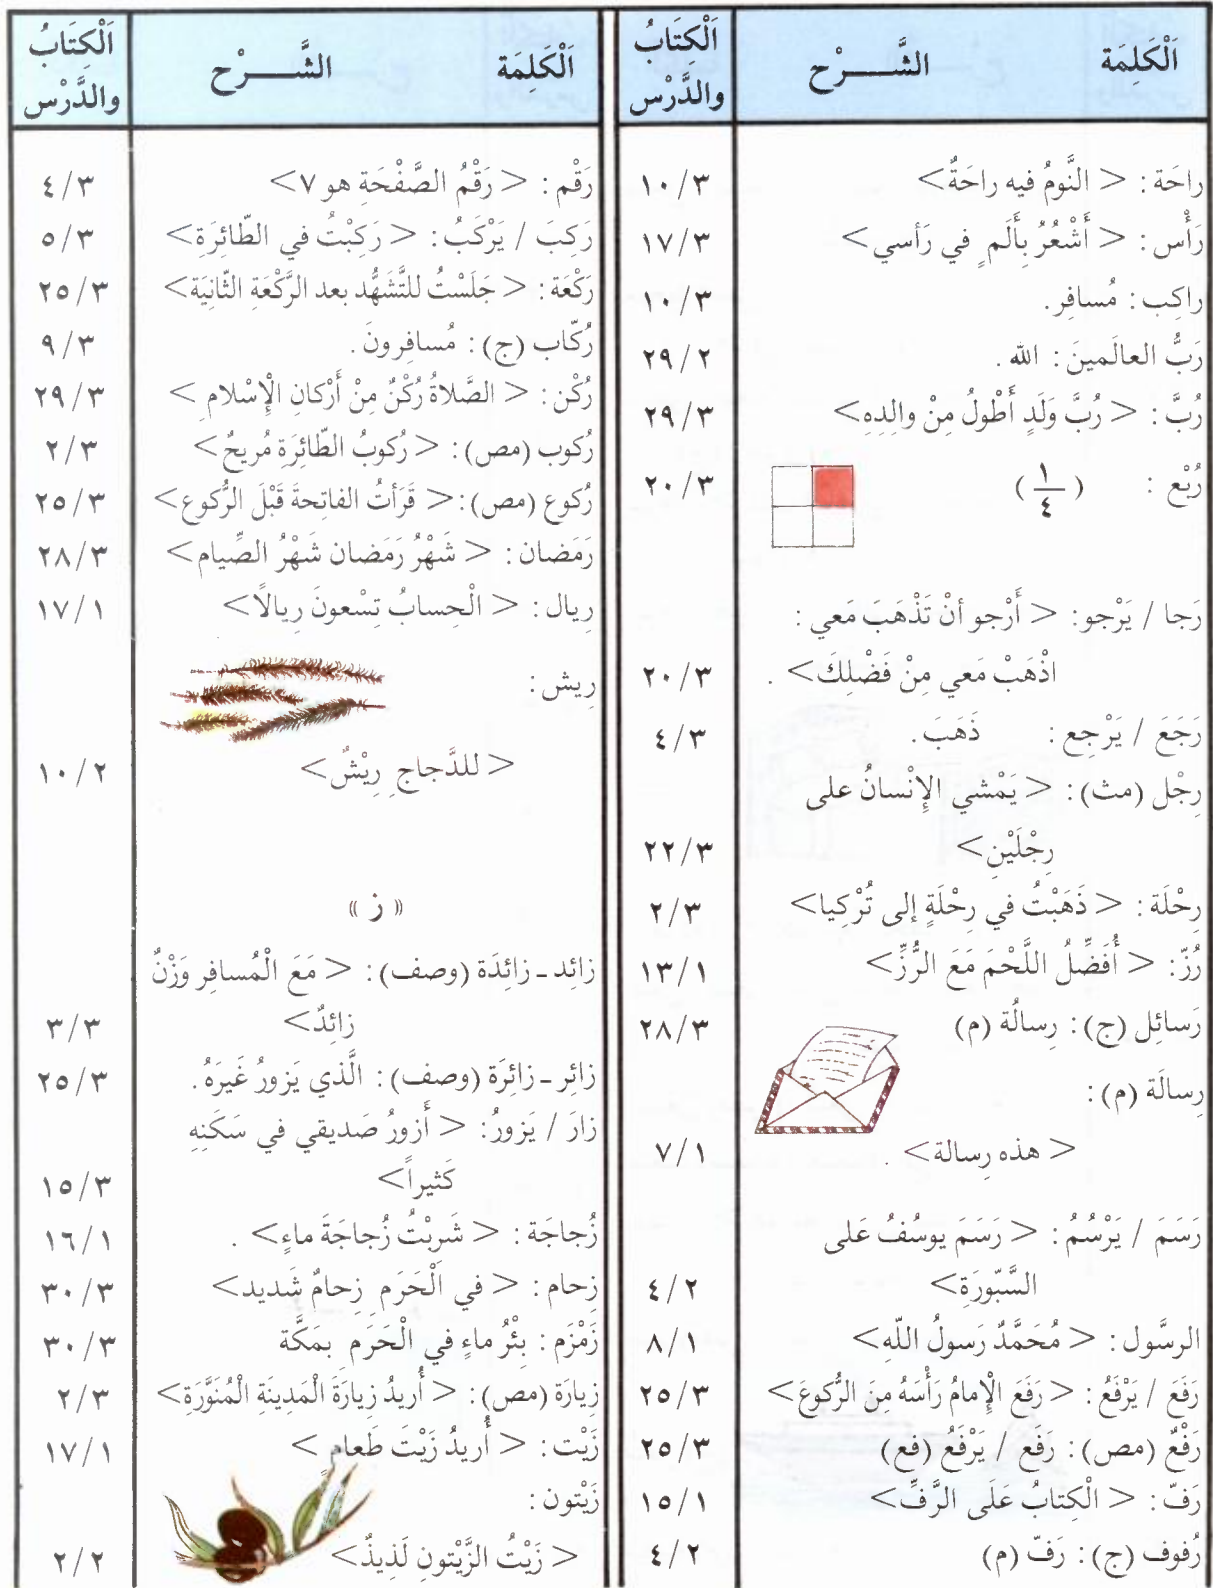 اَلْكَلِمَة الشَّـــــرْح اَلْكِتَابُ والدَّرْس
راحَة : < النَّومُ فيه راحَةٌ> ١٠/٣
رَأْس : < أَشْعُرُ بِأَلَمٍ في رَأسي> ١٧/٣
راكِب : مُسافِر. ١٠/٣
رَبُّ العالَمينَ : الله . ٢٩/٢
رُبَّ : < رُبَّ وَلَدٍ أَطْولُ مِنْ والِدِهِ> ٢٩/٣
رُبْع : ( ١/٤ ) ٢٠/٣
رَجا / يَرْجو: < أَرْجو أنْ تَذْهَبَ مَعي :
اذْهَبْ مَعي مِنْ فَضْلِكَ> . ٢٠/٣
رَجَعَ / يَرْجِع : ذَهَبَ. ٤/٣
رِجْل (مث) : < يَمْشي الإِنْسانُ على
رِجْلَيْنِ> ٢٢/٣
رِحْلَة : < ذَهَبْتُ في رِحْلَةٍ إلى تُرْكِيا> ٢/٣
رُزّ : < أُفَضِّلُ اللَّحْمَ مَعَ الرُّزِّ> ١٣/١
رَسائِل (ج) : رِسالُة (م) ٢٨/٣
رِسالَة (م) :
< هذه رِسالة> . ٧/١
رَسَمَ / يَرْسُمُ : < رَسَمَ يوسُفُ عَلى
السَّبّورَةِ> ٤/٢
الرسَّول : < مُحَمَّدٌ رَسولُ اللّهِ> ٨/١
رَفَعَ / يَرْفَعُ : < رَفَعَ الإِمامُ رَأْسَهُ مِنَ الرُّكوعَ> ٢٥/٣
رَفْعٌ (مص) : رَفَع / يَرْفَعُ (فع) ٢٥/٣
رَفّ : < الْكِتابُ عَلَى الرَّفِّ> ١٥/١
رُفوف (ج) : رَفّ (م) ٤/٢
اَلْكَلِمَة الشَّـــــرْح اَلْكِتَابُ والدَّرْس
رَقْم : < رَقْمُ الصَّفْحَةِ هو ٧> ٤/٣
رَكِبَ / يَرْكَبُ : < رَكِبْتُ في الطّائِرَةِ> ٥/٣
رَكْعَة : < جَلَسْتُ للتَّشَهُّد بعد الرَّكْعَةِ الثّانِيَة> ٢٥/٣
رُكّاب (ج) : مُسافِرونَ . ٩/٣
رُكْن : < الصَّلاةُ رُكْنٌ مِنْ أَرْكانِ الْإِسْلامِ > ٢٩/٣
رُكوب (مص) : < رُكوبُ الطّائِرَةِ مُريحٌ> ٢/٣
رُكوع (مص) : < قَرَأتُ الفاتِحةَ قَبْلَ الرُّكوع> ٢٥/٣
رَمَضان : < شَهْرُ رَمَضان شَهْرُ الصِّيام> ٢٨/٣
رِيال : < الْحِسابُ تِسْعونَ رِيالًا> ١٧/١
رِيش :
< للدَّجاجِ رِيْشٌ> ١٠/٢
« ز »
زائِد - زائِدَة (وصف) : < مَعَ الْمُسافِر وَزْنٌ
زائِدٌ> ٣/٣
زائِر - زائِرَة (وصف) : الَّذي يَزورُ غَيرَهُ. ٢٥/٣
زارَ / يَزورُ: < أَزورُ صَديقي في سَكَنِهِ
كَثيراً> ١٥/٣
زُجاجَة : < شَرِبْتُ زُجاجَةَ ماءٍ> . ١٦/١
زِحام : < في اَلْحَرَمِ زِحامٌ شَديد> ٣٠/٣
زَمْزَم : بِئْرُ ماءٍ في الْحَرَمِ بمَكَّة ٣٠/٣
زِيارَة (مص) : < أُريدُ زِيارَةَ الْمَدِينَةِ الْمُنَوَّرَةِ> ٢/٣
زَيْت : < أُريدُ زَيْتَ طَعامٍ > ١٧/١
زَيْتون :
< زَيْتُ الزَّيْتونِ لَذيذٌ> ٢/٢